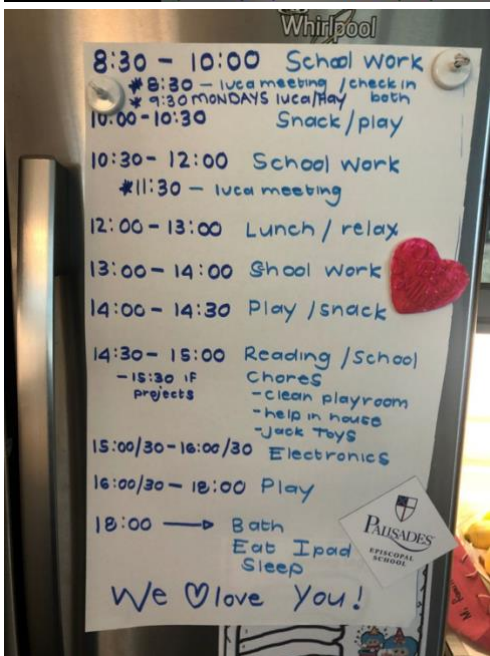 Whirlpool
8:30 - 10:00 School work
*8:30 - luca meeting / check in
* 9:30 MONDAYS luca/Hay both
10:00-10:30 Snack/play
10:30- 12:00 School work
*11:30 - luca meeting
12:00 - 13:00 Lunch / relax
13:00 - 14:00 Shool work
14:00 - 14:30 Play /snack
14:30- 15:00 Reading /School
-15:30 IF Chores
projects -clean playroom
-help in house
-Jack Toys
15:00/30-16:00/30 Electronics
16:00/30- 18:00 Play
18:00 → Bath
Eat Ipad
Sleep
PALISADES
EPISCOPAL
SCHOOL
We ♡ love You!